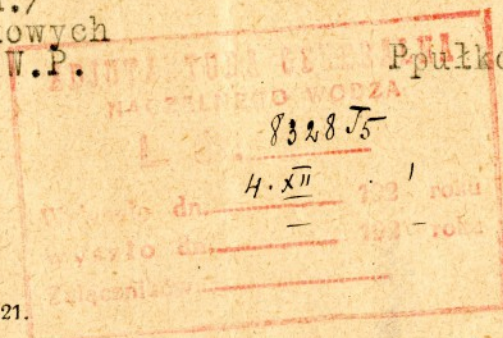 owych
W.P. Ppułko
ADJUTANTURA GENERALNA
NACZELNEGO WODZA
L. 8328 T5
dn. 4. XII 192 1 roku
wyszło dn. — 192 — roku
Załączników
21.